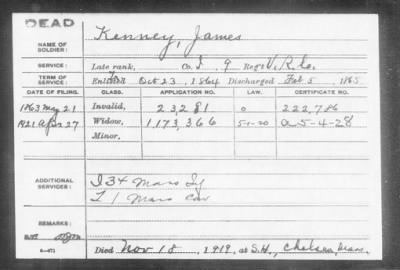 DEAD
NAME OF SOLDIER: Kenney, James
SERVICE: Late rank, Co. I, 9 Reg't V.R.C.
TERM OF SERVICE: Enlisted Oct 23, 1864 Discharged Feb 5, 1865
DATE OF FILING. CLASS. APPLICATION NO. LAW. CERTIFICATE NO.
1863 May 21 Invalid, 23,281 0 222,786
1921 Apr 27 Widow, 1,173,366 5-1-20 a-5-4-28
Minor,
ADDITIONAL SERVICES: I 34 Mass Inf
L 1 Mass Cav
REMARKS:
Died Nov 18, 1919, at S.H., Chelsea, Mass.